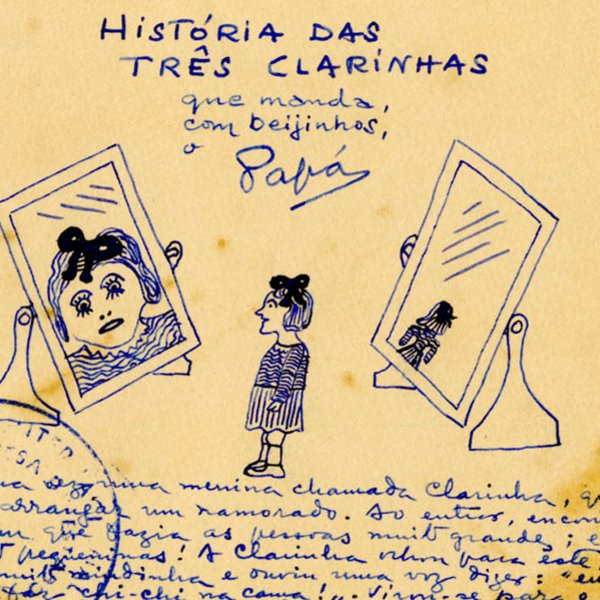 HISTÓRIA DAS
TRÊS CLARINHAS
que manda,
com beijinhos,
o Papá
uma menina chamada Clarinha, q
arranjar um namorado. Ao entrar, encon
que fazia as pessoas muit grande; e
t pequeninas! A Clarinha olhou para este
muit lindinha e ouviu uma voz dizer: "eu
faz "chi-chi na cama!". Virou-se para o